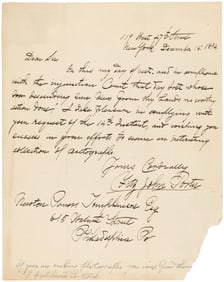 119 West 47th Street
New York December 16, 1894
Dear Sir
In this my day of rest, and in compliance
with the injunction "Count that day lost whose
low descending sun views from thy hands no worthy
action done" I take pleasure in complying with
your request of the 14th Instant, and wishing you
success in your efforts to secure an interesting
collection of autographs
Yours Cordially
Fitz John Porter
Newton Esq
615 Walnut Street
Philadelphia Pa
If you are making photographs